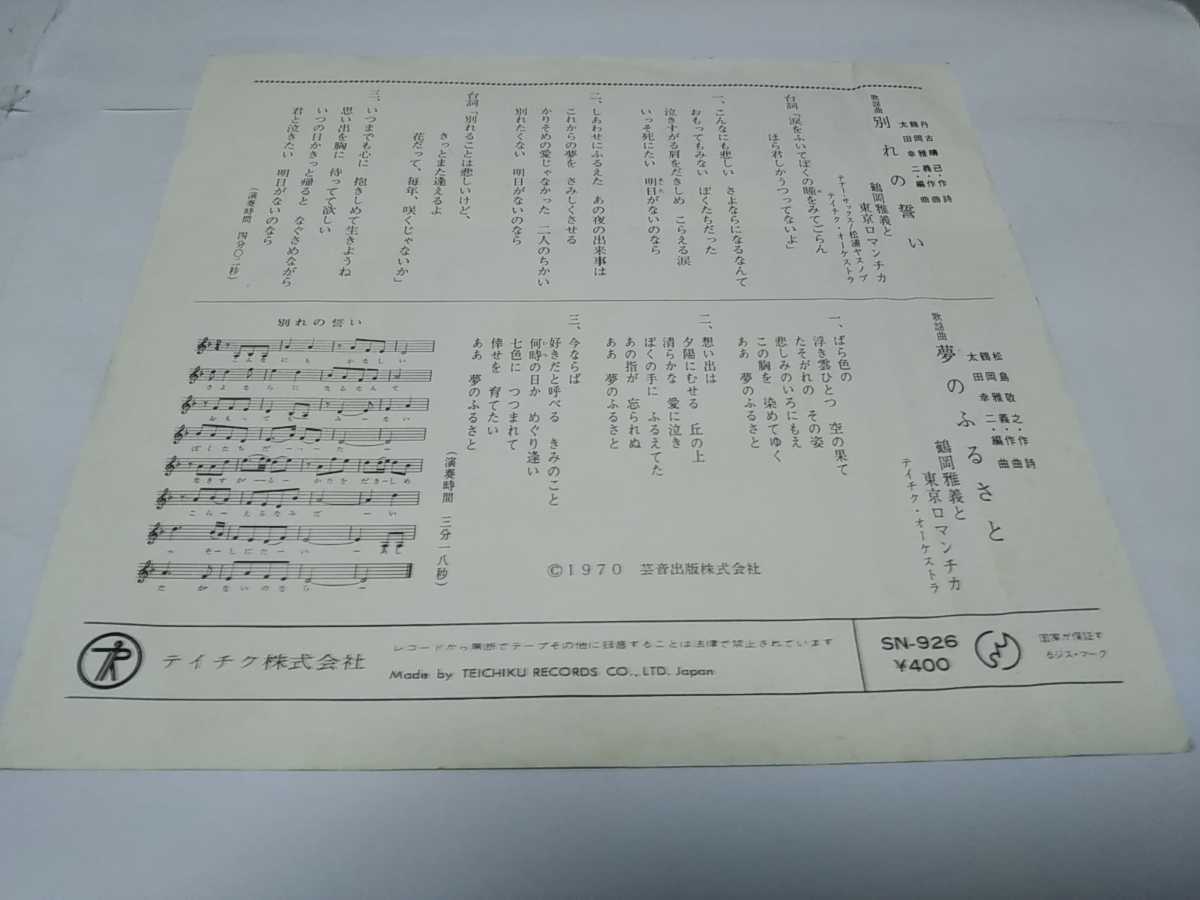 歌謡曲
別れの誓い
丹古晴己・作詩
鶴岡雅義・作曲
太田幸二・編曲
鶴岡雅義と
東京ロマンチカ
テナー・サックス/松浦ヤスノブ
テイチク・オーケストラ
台詞「涙をふいてぼくの瞳をみてごらん
ほら君しかうつってないよ」
一、こんなにも悲しい さよならになるなんて
おもってもみない ぼくたちだった
泣きすがる肩をだきしめ こらえる涙
いっそ死にたい 明日がないのなら
二、しあわせにふるえた あの夜の出来事は
これからの夢を さみしくさせる
かりそめの愛じゃなかった 二人のちかい
別れたくない 明日がないのなら
台詞「別れることは悲しいけど、
きっとまた逢えるよ
花だって、毎年、咲くじゃないか」
三、いつまでも心に 抱きしめて生きようね
思い出を胸に 待ってて欲しい
いつの日かきっと帰ると なぐさめながら
君と泣きたい 明日がないのなら
(演奏時間 四分〇二秒)
歌謡曲
夢のふるさと
松島敬之・作詩
鶴岡雅義・作曲
太田幸二・編曲
鶴岡雅義と
東京ロマンチカ
テイチク・オーケストラ
一、ばら色の
浮き雲ひとつ 空の果て
たそがれの その姿
悲しみのいろにもえ
この胸を 染めてゆく
ああ 夢のふるさと
二、想い出は
夕陽にむせる 丘の上
清らかな 愛に泣き
ぼくの手に ふるえてた
あの指が 忘られぬ
ああ 夢のふるさと
三、今ならば
好きだと呼べる きみのこと
何時の日か めぐり逢い
七色に つつまれて
倖せを 育てたい
ああ 夢のふるさと
(演奏時間 三分一八秒)
別れの誓い
こんなにも かなしい
さよならに なるなんて
おもっても みーない
ぼくたちだー・ったー
なきすがーるー かたをだきーしめ
こらーえるなみだ ーい
っ そーしにたーいー あし
た がないのなら ー
©1970 芸音出版株式会社
テイチク株式会社
レコードから無断でテープその他に録音することは法律で禁止されています
Made by TEICHIKU RECORDS CO., LTD. Japan
SN-926
¥400
国家が保証す
るジス・マーク